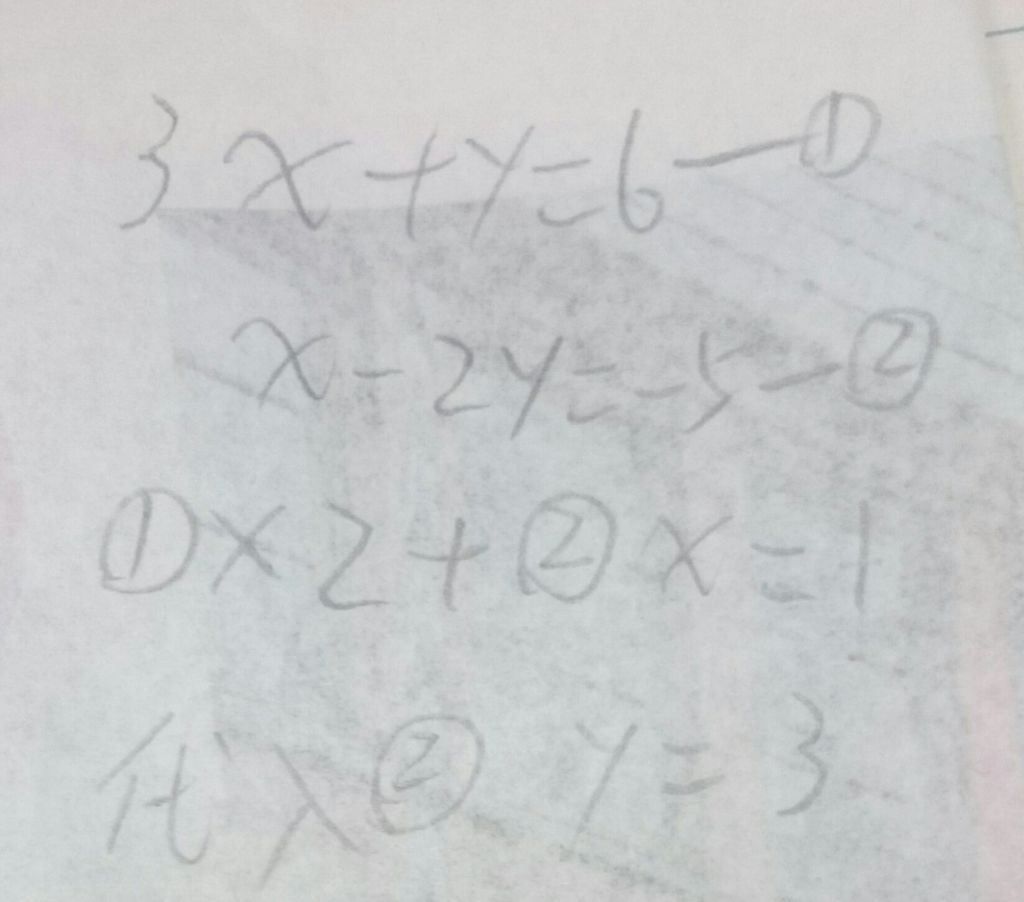 3x+y=6—①
x-2y=-5—②
①×2+② x=1
代入② y=3